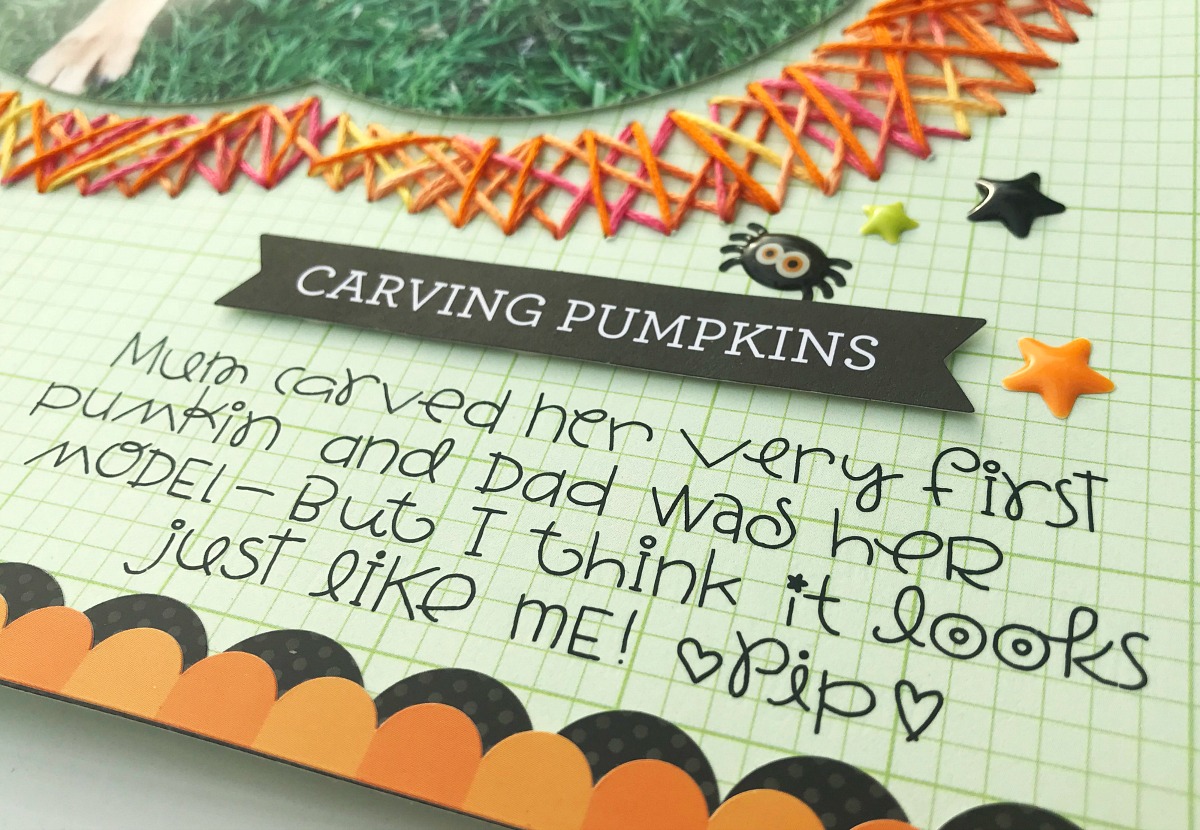 CARVING PUMPKINS
Mum carved her very first
pumkin and Dad was her
MODEl - But I think it looks
just like mE! ♡Pip♡